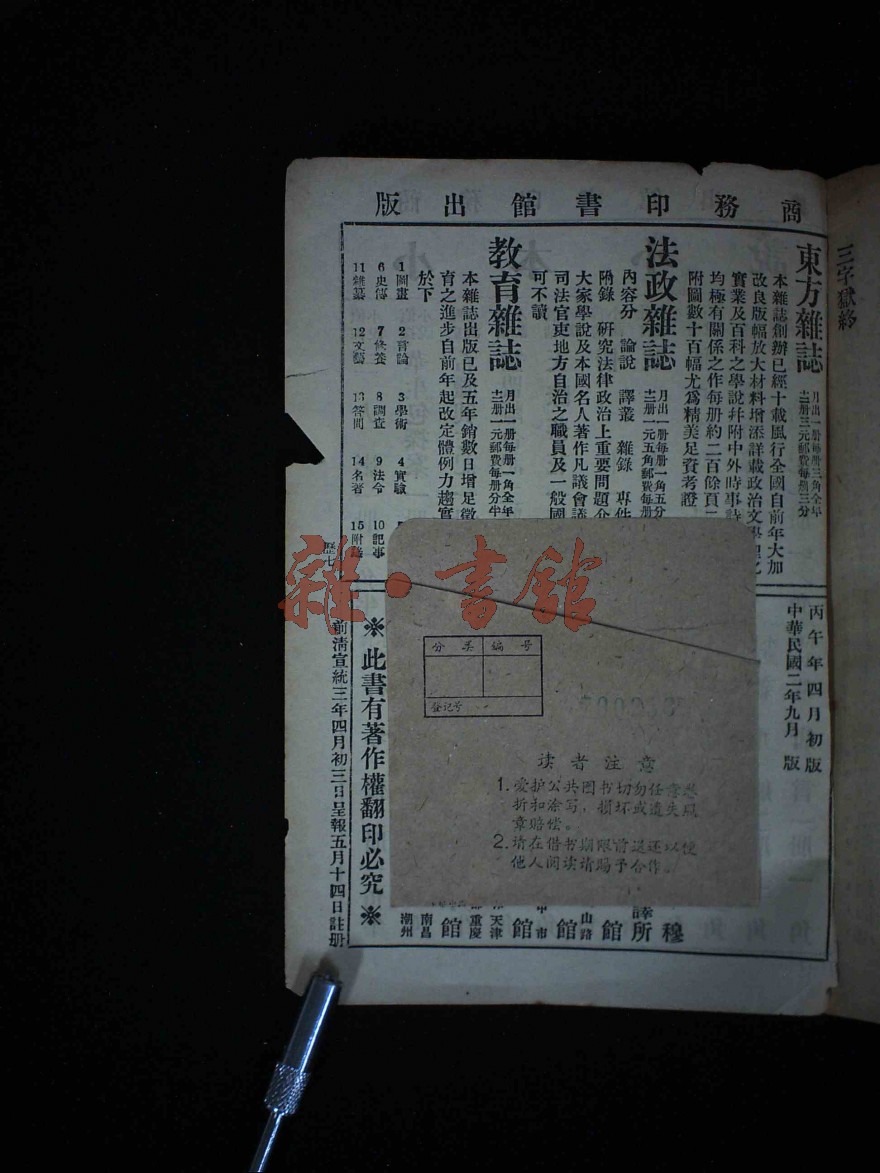 商務印書館出版
東方雜誌
月出一册每册三角全年
十二册三元郵費每册三分
本雜誌創辦已經十載風行全國自前年大加
改良版幅放大材料增添詳載政治文學理化
實業及百科之學說幷附中外時事詩
均極有關係之作每册約二百餘頁
附圖數十百幅尤爲精美足資考證
法政雜誌
月出一册每册一角五分
十二册一元五角郵費每册
內容分 論說 譯叢 雜錄 專件
附錄 研究法律政治上重要問題
大家學說及本國名人著作凡議會議
司法官吏地方自治之職員及一般國
可不讀
教育雜誌
月出一册每册一角全年
十二册一元郵費每册分半
本雜誌出版已及五年銷數日增足徵
育之進步自前年起改定體例力趨實
於下
1圖畫 2言論 3學術 4實驗
6史傳 7修養 8調查 9法令 10記事
11雜纂 12文藝 13答問 14名著 15附錄
歷七
丙午年四月初版
中華民國二年九月 版
譯所
穆
館
山路
館
市
館
天津
重慶
館
南昌
潮州
※此書有著作權翻印必究※
前淸宣統三年四月初三日呈報五月十四日註册
三字獄終
分类编号
登记号
读者注意
1.爱护公共图书切勿任意卷
折和涂写，损坏或遗失照
章赔偿。
2.请在借书期限前送还以便
他人阅读请赐予合作。
雜·書館